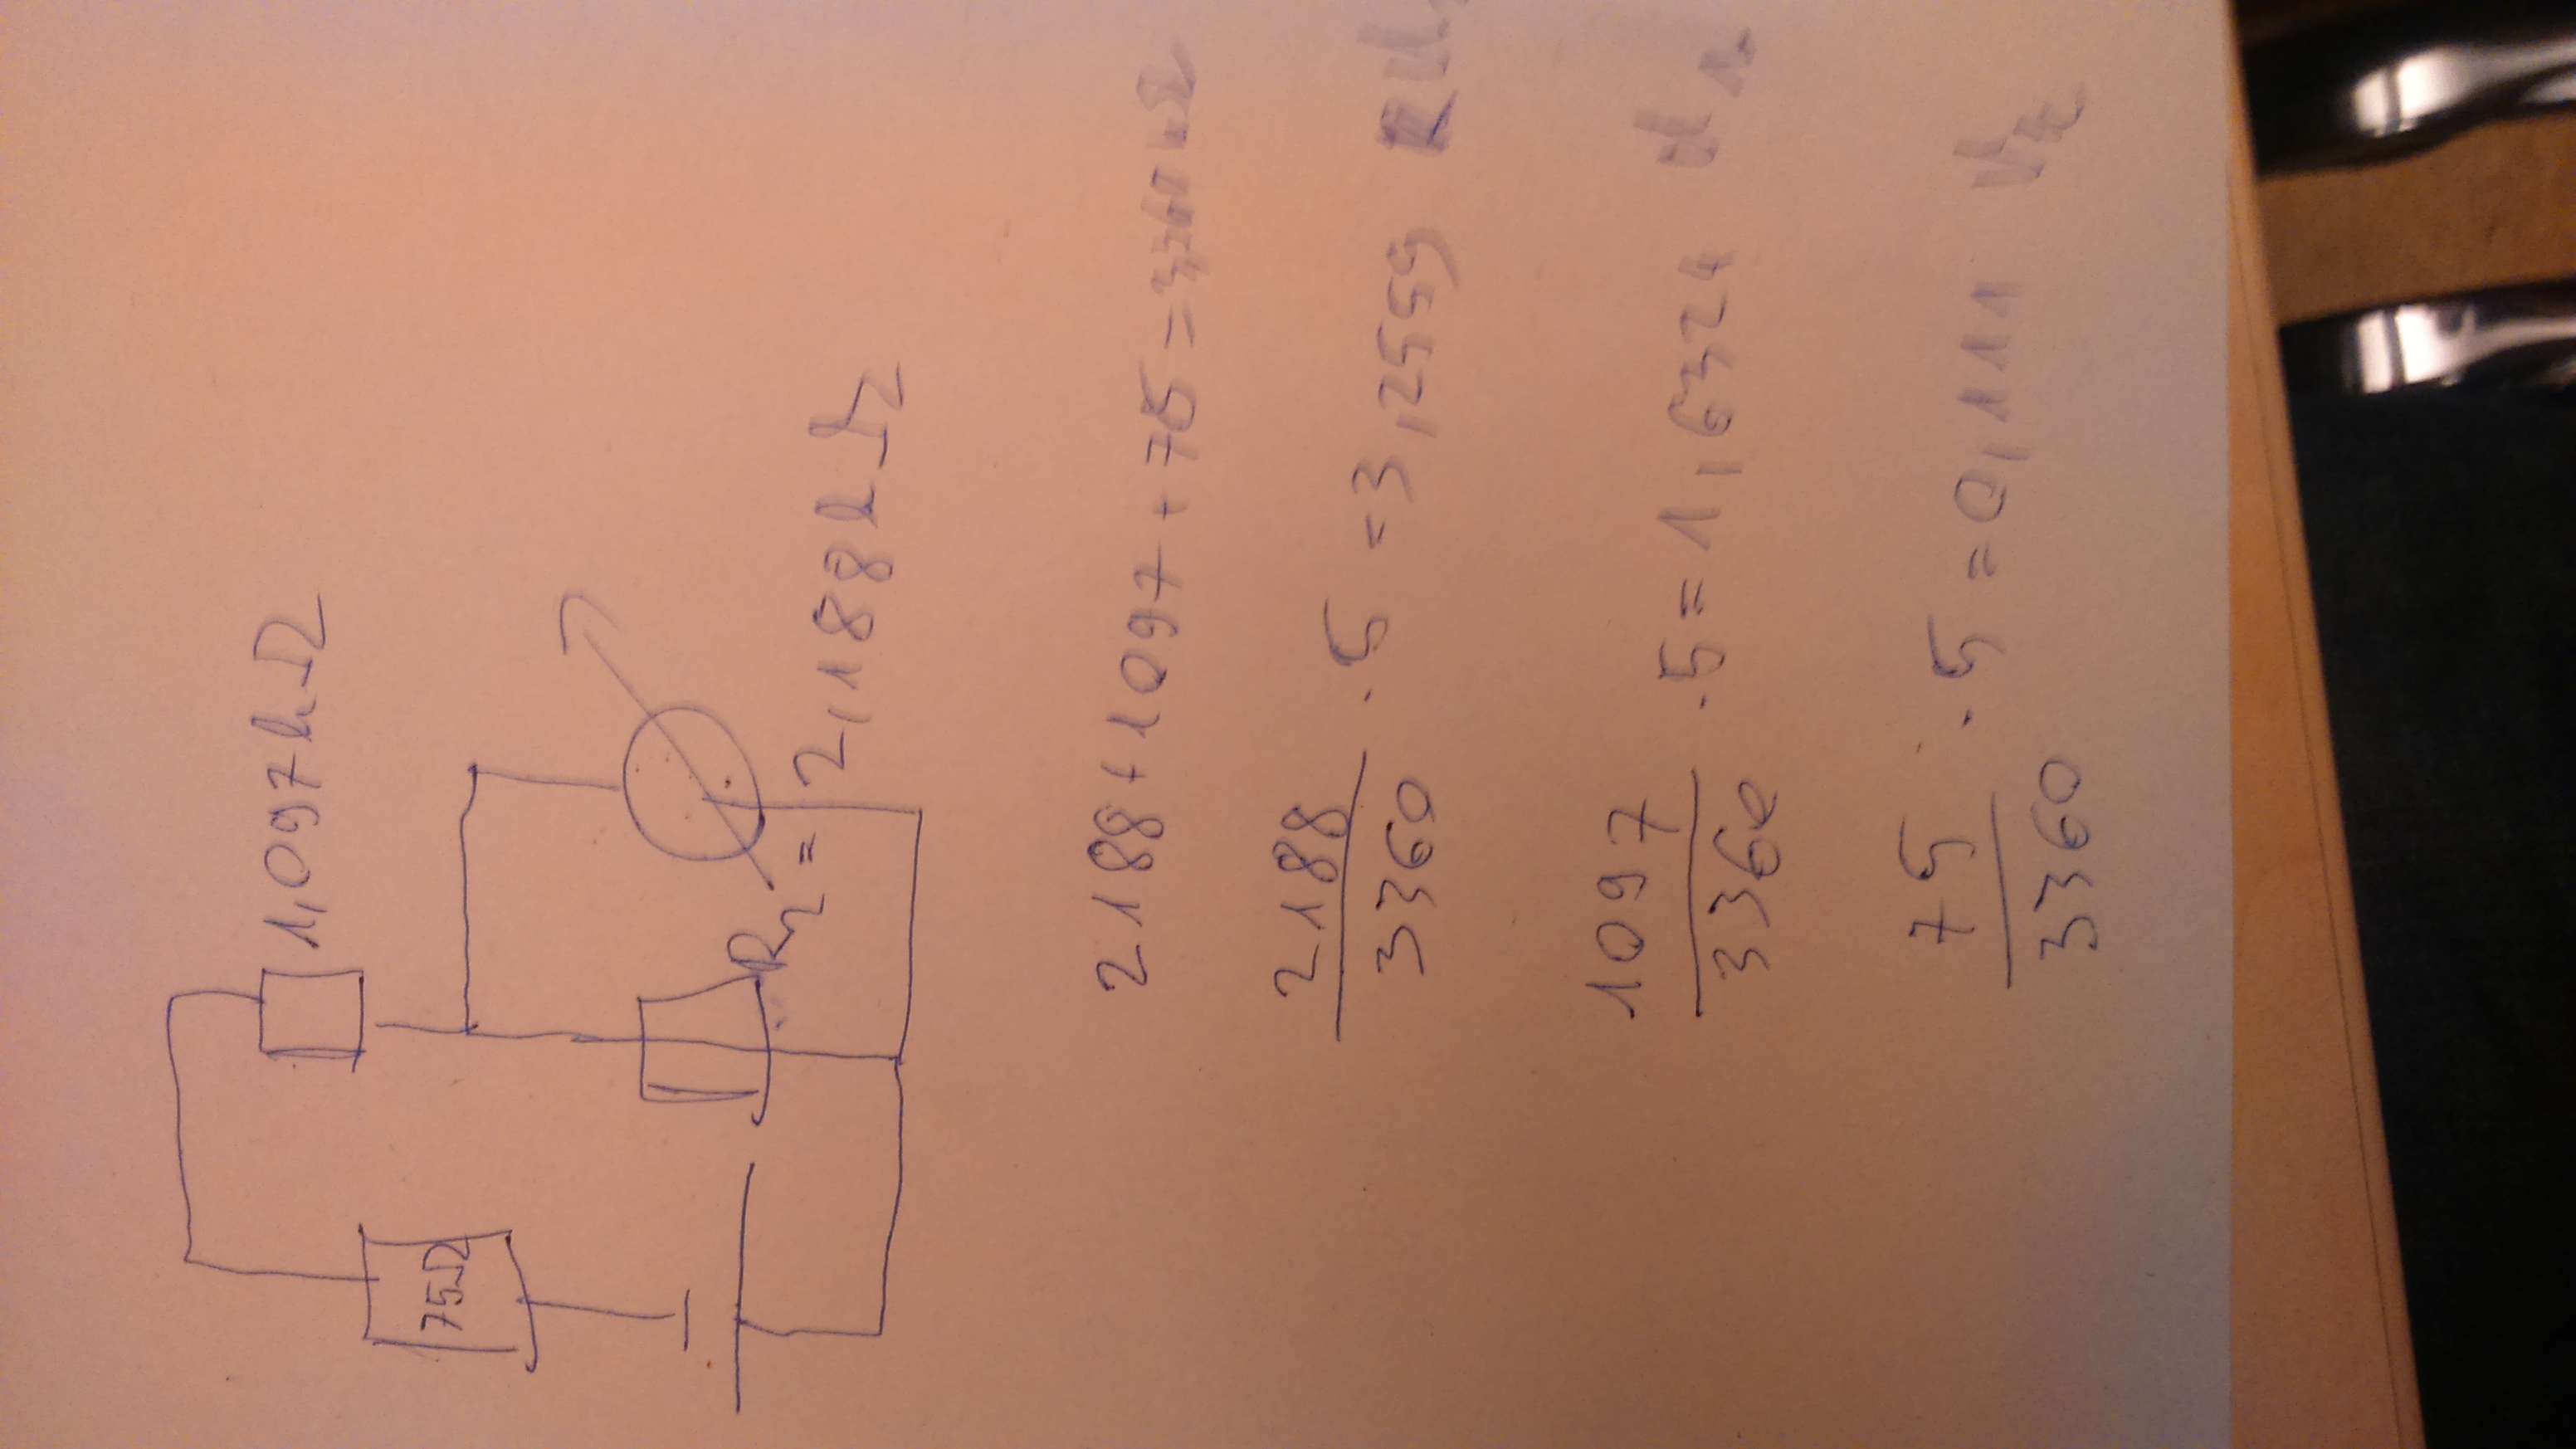 75Ω
1,097kΩ
R2 = 2,188kΩ
2188+1097+75=3,360kΩ
2188/3360 · 5 = 3,2559
1097/3360 · 5 = 1,6324 U1
75/3360 · 5 = 0,111